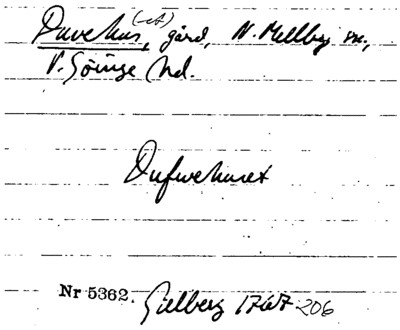 Duvehus(-et), gård, N. Mellby sn,
V. Göinge hd.
Dufwehuset
Nr 5362. Gillberg 1767 206